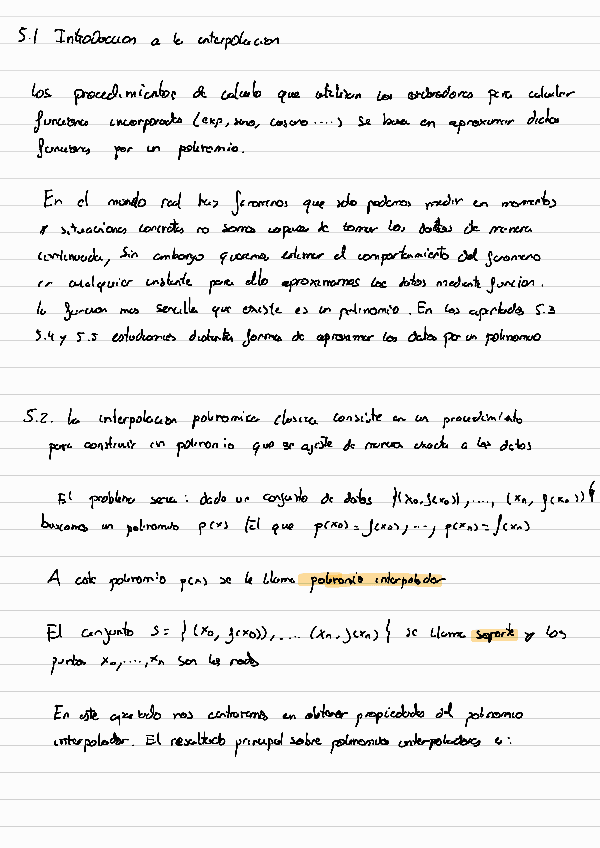 5.1 Introduccion a la interpolacion
Los procedimientos de calculo que utilizan los ordenadores para calcular
funciones incorporadas (exp, seno, coseno ....) se basa en aproximar dichas
funciones por un polinomio.
En el mundo real hay fenomenos que solo podemos medir en momentos
y situaciones concretas no somos capaces de tomar los datos de manera
continuada, Sin embargo queremos estimar el comportamiento del fenomeno
en cualquier instante para ello aproximamos los datos mediante funcion.
la funcion mas sencilla que existe es un polinomio. En los apartados 5.3
5.4 y 5.5 estudiamos distintas formas de aproximar los datos por un polinomio
5.2. La interpolacion polinomica clasica consiste en un procedimiento
para construir un polinomio que se ajuste de manera exacta a los datos
El problema seria : dado un conjunto de datos {(x₀, f(x₀)), ...., (xₙ, f(xₙ))}
buscamos un polinomio p(x) tal que p(x₀) = f(x₀), ..., p(xₙ) = f(xₙ)
A este polinomio p(x) se le llama polinomio interpolador
El conjunto S = {(x₀, f(x₀)), .... (xₙ, f(xₙ)} se llama soporte y los
puntos x₀, ..., xₙ son los nodos
En este apartado nos centraremos en obtener propiedades del polinomio
interpolador. El resultado principal sobre polinomios interpoladores es: